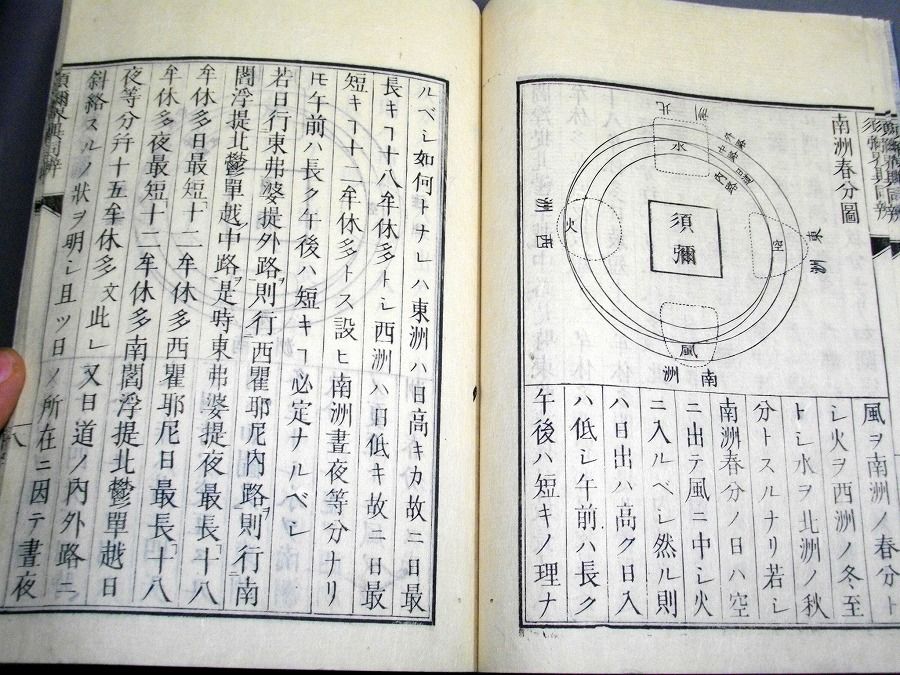 南洲春分圖
須彌
北
洲
水
外路
中路
日道
内路
東
洲
空
西
洲
火
南
洲
風
風ヲ南洲ノ春分ト
シ火ヲ西洲ノ冬至
トシ水ヲ北洲ノ秋
分トスルナリ若シ
南洲春分ノ日ハ空
ニ出テ風ニ中シ火
ニ入ルベシ然ル則
ハ日出ハ高ク日入
ハ低シ午前ハ長ク
午後ハ短キノ理ナ
ルベシ如何トナレハ東洲ハ日高キカ故ニ日最
長キヿ十八牟休多トシ西洲ハ日低キ故ニ日最
短キヿ十二牟休多トス設ヒ南洲晝夜等分ナリ
𪜈午前ハ長ク午後ハ短キヿ必定ナルベシ
若日行東弗婆提外路則行西瞿耶尼内路則行南
閻浮提北鬱單越中路是時東弗婆提夜最長十八
牟休多日最短十二牟休多西瞿耶尼日最長十八
牟休多夜最短十二牟休多南閻浮提北鬱單越日
夜等分幷十五牟休多文此レ又日道ノ内外路ニ
斜絡スルノ狀ヲ明シ且ツ日ノ所在ニ因テ晝夜
八